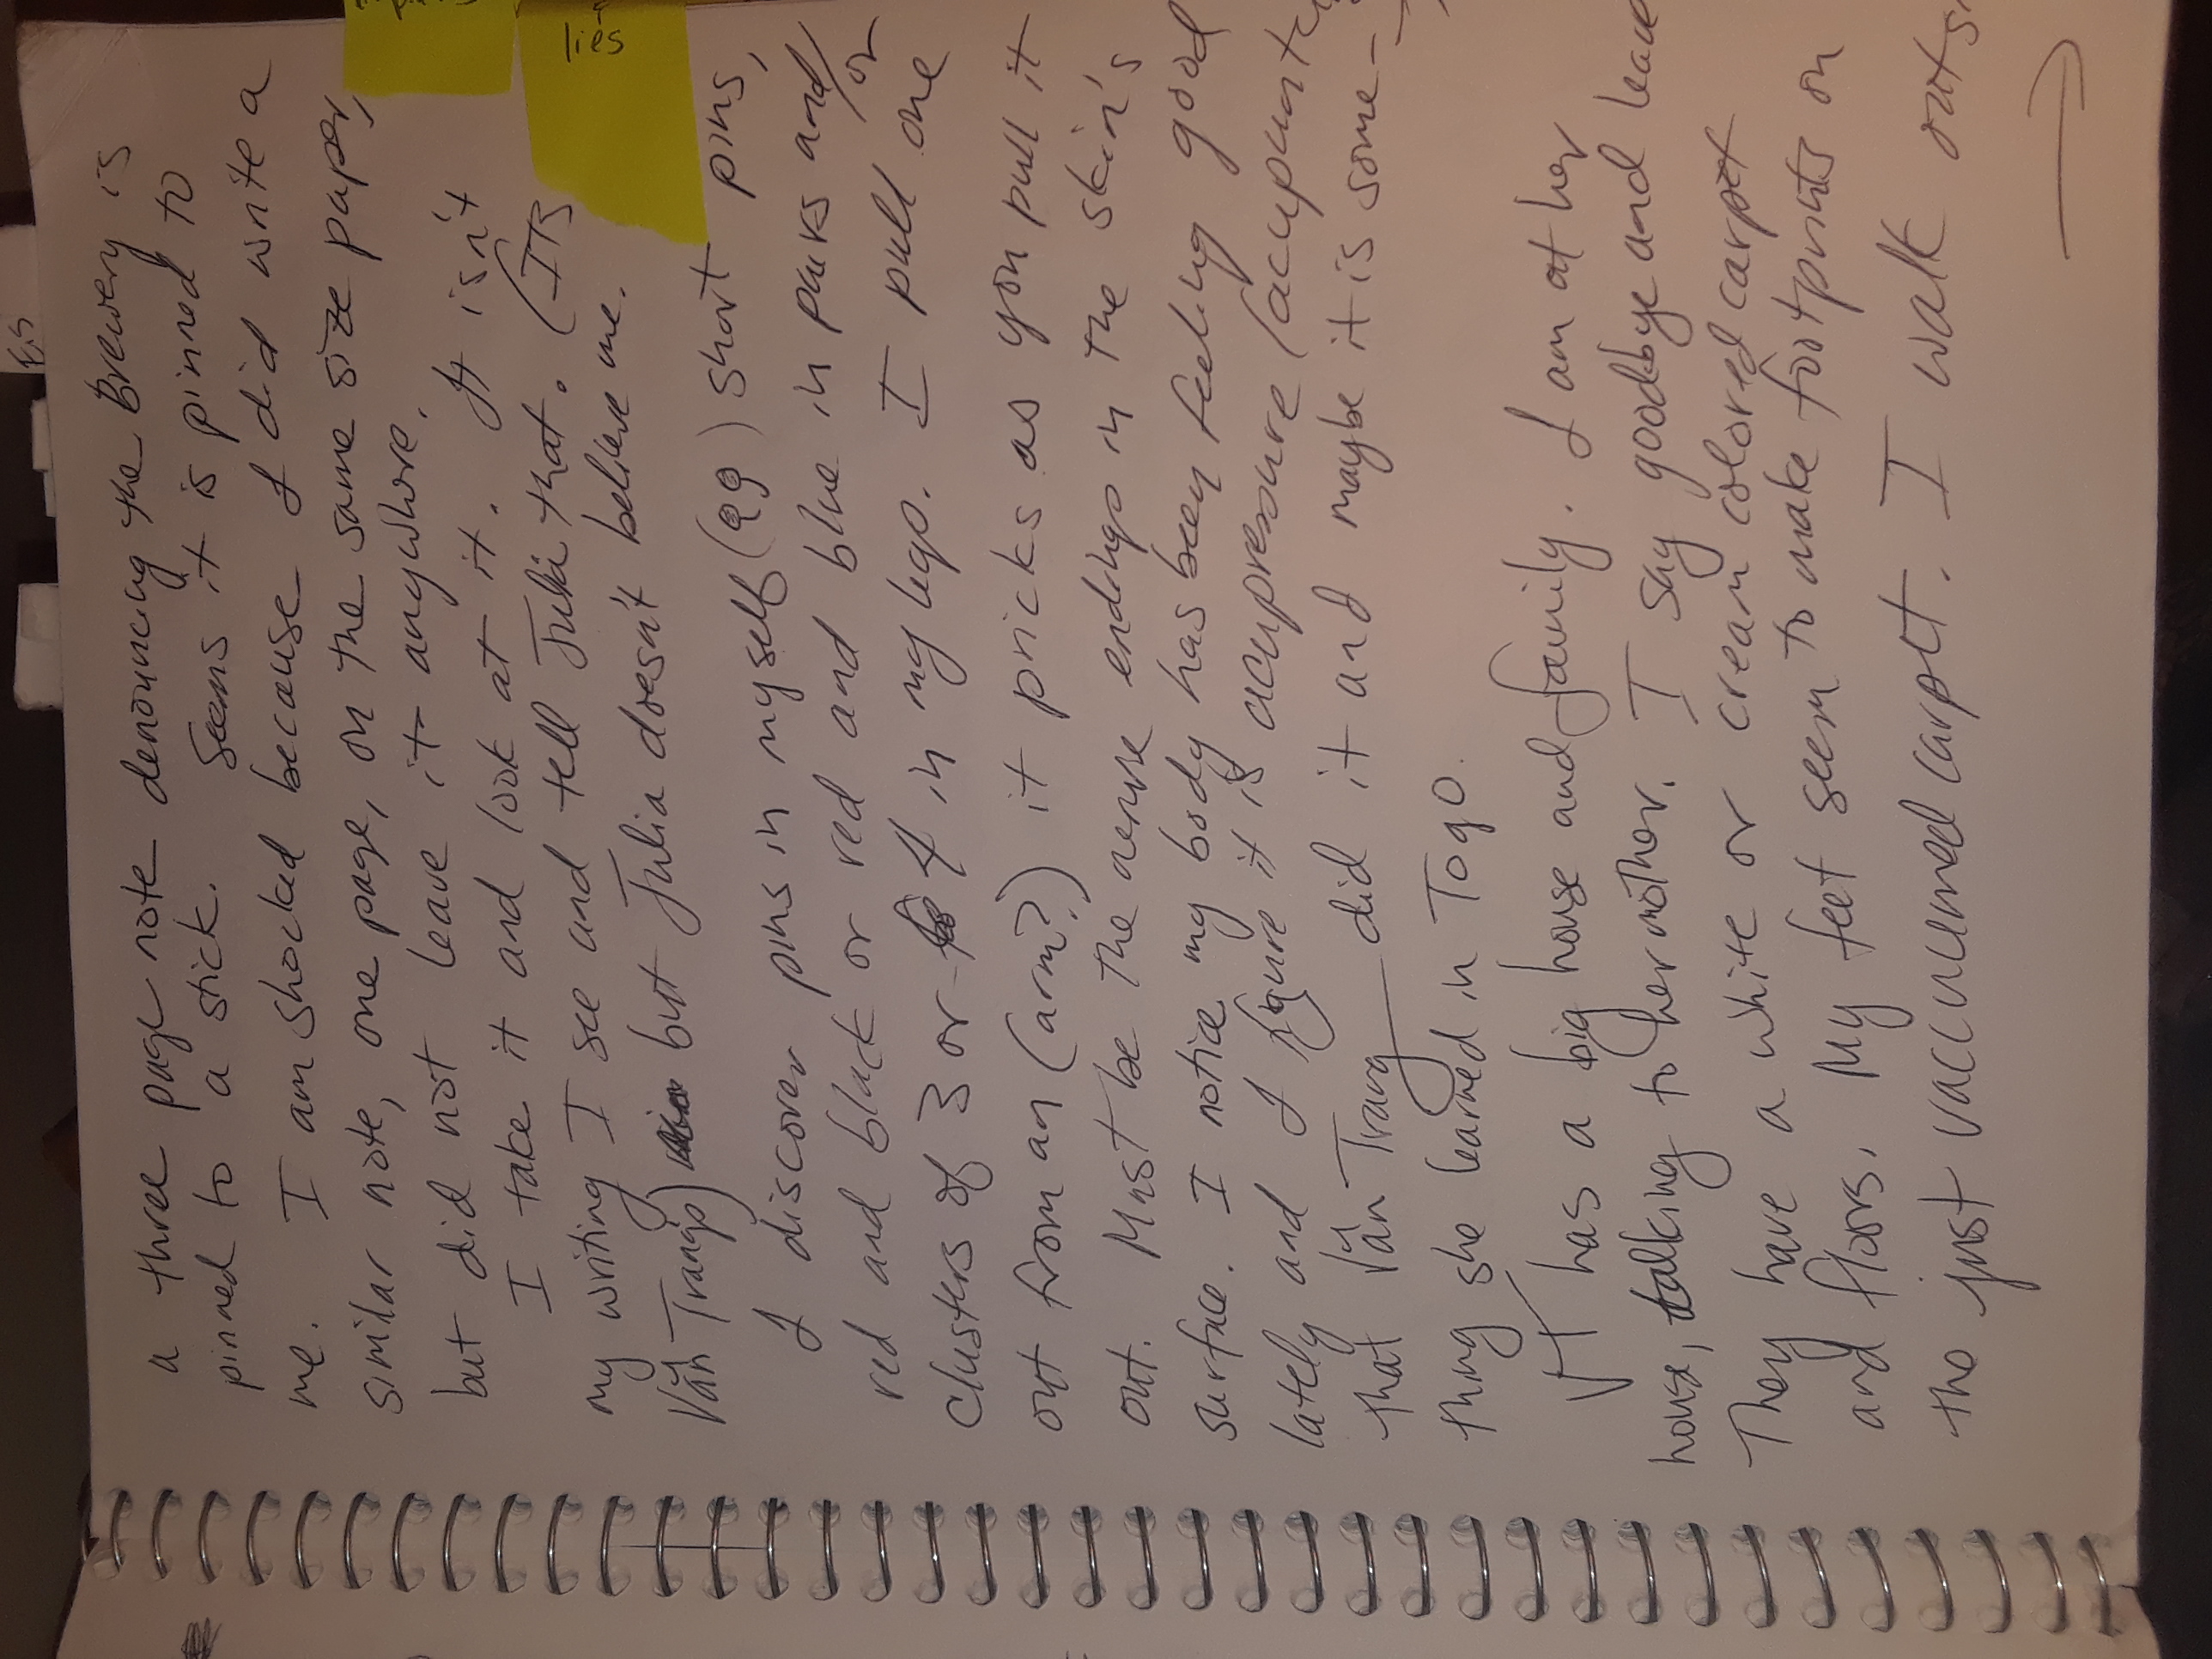 a three page note denouncing the Brewery is
pinned to a stick. Seems it is pinned to
me. I am shocked because I did write a
similar note, one page, on the same size paper,
but did not leave it anywhere.
I take it and look at it. It isn't
my writing I see and tell Julia that. (ITS
Văn Trang's) but Julia doesn't believe me.
I discover pins in myself (99) short pins,
red and black or red and blue in pairs and/or
clusters of 3 or 4 in my legs. I pull one
out from an (arm?) it pricks as you pull it
out. Must be the nerve endings in the skin's
surface. I notice my body has been feeling good
lately and I figure it is acupressure (acupunct
that Văn Trang did it and maybe it is some-
thing she learned in Togo.
VT has a big house and family. I am at her
house, talking to her mother. I say goodbye and leave
They have a white or cream colored carpet
and floors. My feet seem to make footprints on
the just vaccumned carpet. I walk outs
lies